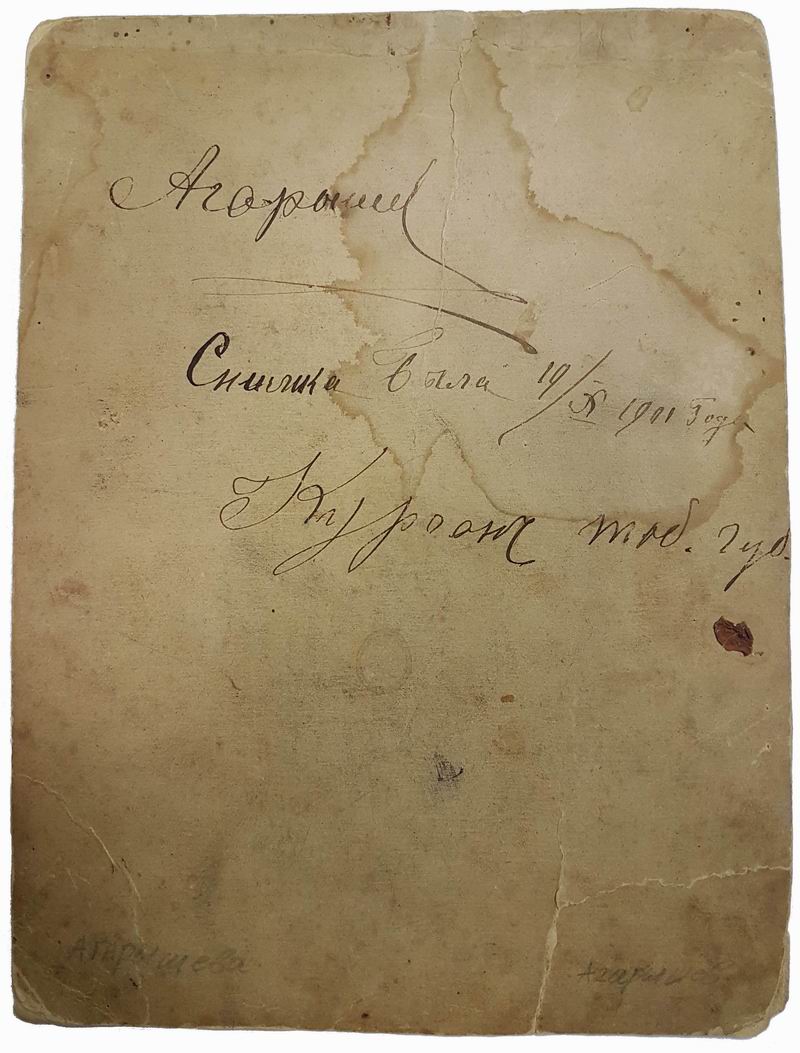 Агарышев
Снимка была 19/X 1901 Года
Курганъ тоб. губ.
Агарышева Агарышев